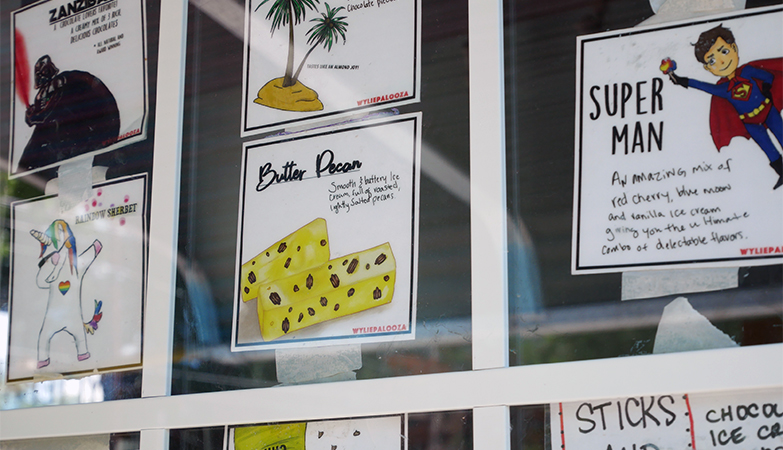 A CHOCOLATE LOVERS FAVORITE!
A CREAMY MIX OF 3 RICH
DELICIOUS CHOCOLATES
* ALL NATURAL AND
AWARD WINNING
WYLIEPALOOZA
RAINBOW SHERBET
chocolate
TASTES LIKE AN ALMOND JOY!
WYLIEPALOOZA
Butter Pecan
Smooth & buttery Ice
Cream full of roasted,
lightly salted pecans
WYLIEPALOOZA
SUPER
MAN
An amazing mix of
red cherry, blue moon
and vanilla ice cream
giving you the ultimate
combo of delectable flavors.
WYLIEPALOOZA
STICKS
AND
CHOCOL
ICE CR